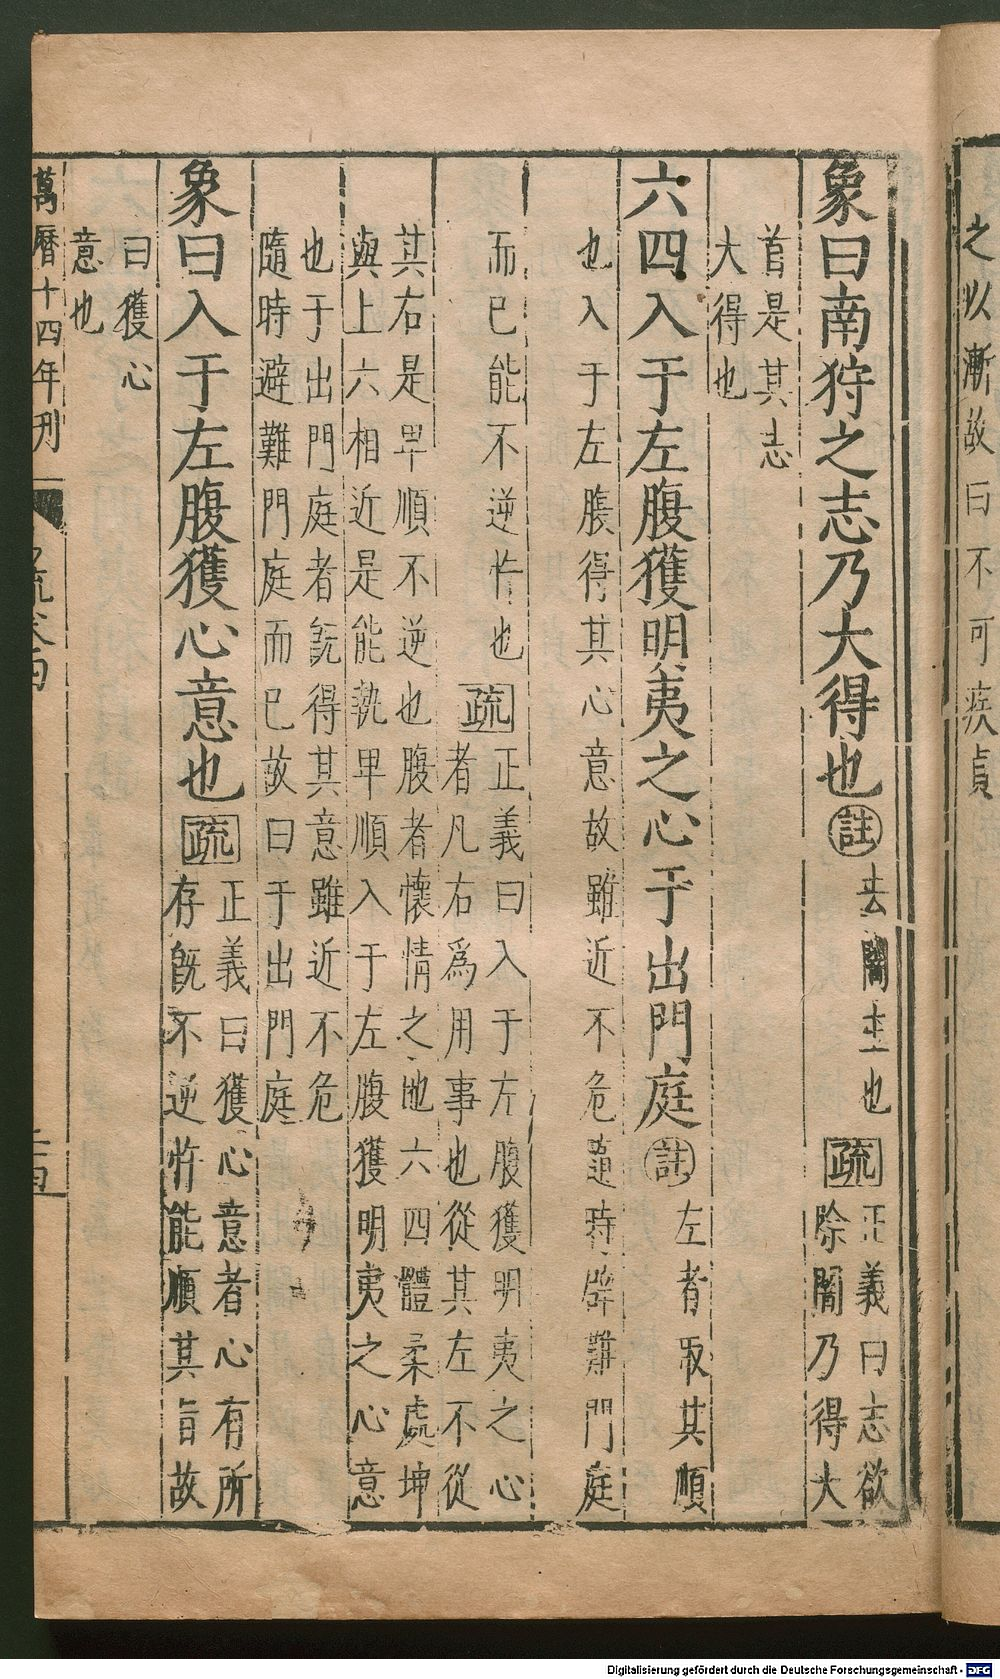 之以漸故曰不可疾貞
象曰南狩之志乃大得也註去闇主也疏正義曰志欲
除闇乃得大
首是其志
大得也
六四入于左腹獲明夷之心于出門庭註左者取其順
也入于左腹得其心意故雖近不危隨時辟難門庭
而已能不逆忤也疏正義曰入于左腹獲明夷之心
者凡右爲用事也從其左不從
其右是卑順不逆也腹者懷情之地六四體柔處坤
與上六相近是能執卑順入于左腹獲明夷之心意
也于出門庭者旣得其意雖近不危
隨時避難門庭而已故曰于出門庭
象曰入于左腹獲心意也疏正義曰獲心意者心有所
存旣不逆忤能順其旨故
曰獲心
意也
萬曆十四年刊
Digitalisierung gefördert durch die Deutsche Forschungsgemeinschaft - DFG